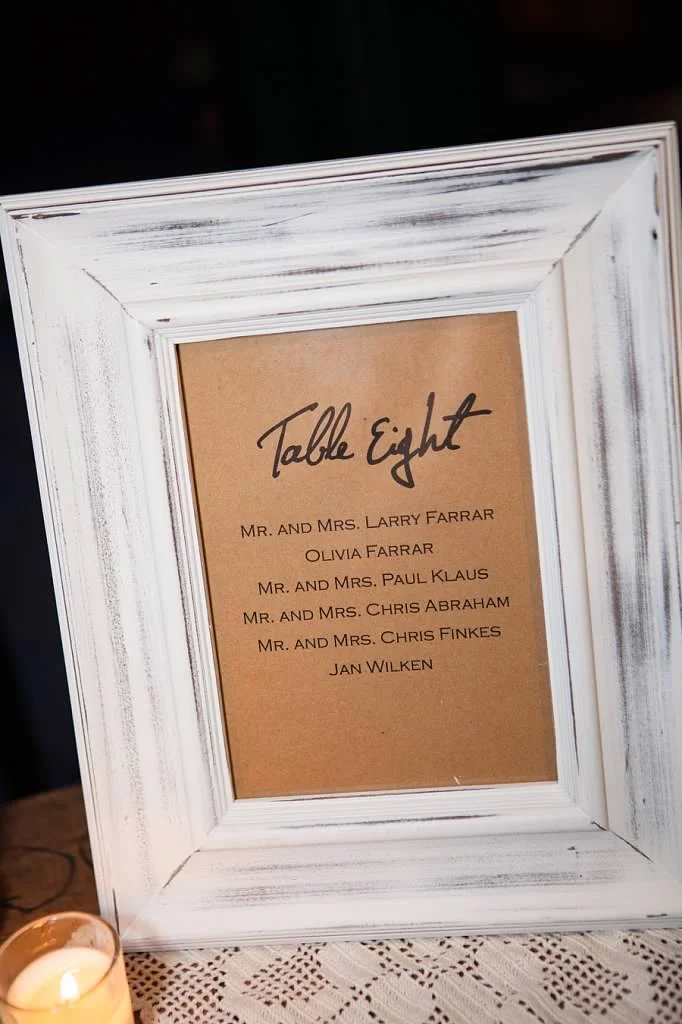 Table Eight
Mr. and Mrs. Larry Farrar
Olivia Farrar
Mr. and Mrs. Paul Klaus
Mr. and Mrs. Chris Abraham
Mr. and Mrs. Chris Finkes
Jan Wilken